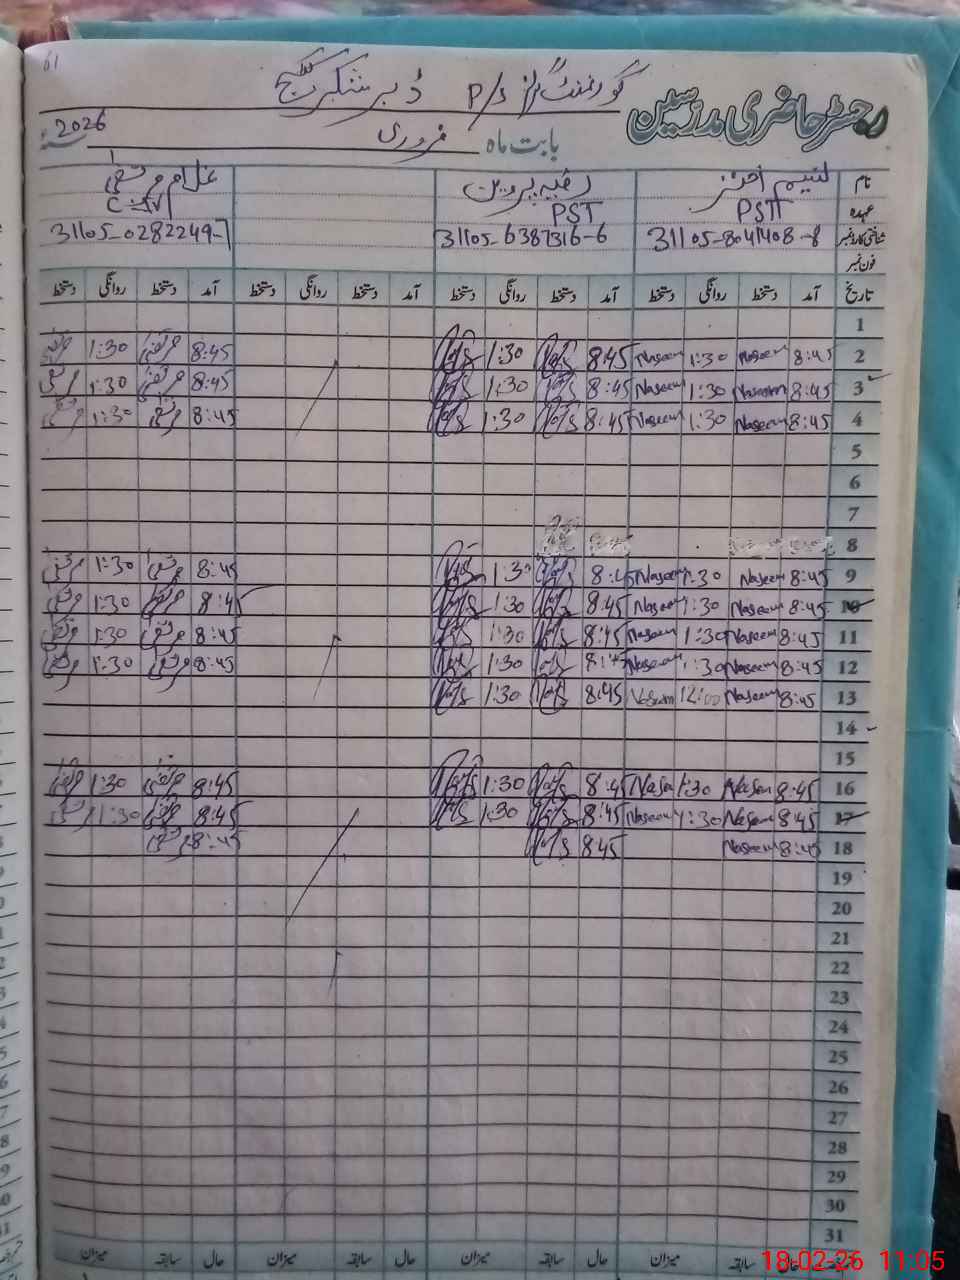 61
گورنمنٹ گرلز P/S
رجسٹر حاضری مدرسین
بابت ماہ فروری سنہ 2026
نام نسیم اختر رضیہ پروین غلام مرتضیٰ
عہدہ PST PST
شناختی کارڈ نمبر 31105-8041408-8 31105-6387316-6 31105-0282249-7
فون نمبر
تاریخ آمد دستخط روانگی دستخط آمد دستخط روانگی دستخط آمد دستخط روانگی دستخط آمد دستخط روانگی دستخط
1
2 8:45 Naseem 1:30 Naseem 8:45 1:30 8:45 مرتضیٰ 1:30 مرتضیٰ
3 8:45 Naseem 1:30 Naseem 8:45 1:30 8:45 مرتضیٰ 1:30 مرتضیٰ
4 8:45 Naseem 1:30 Naseem 8:45 1:30 8:45 مرتضیٰ 1:30 مرتضیٰ
5
6
7
8
9 8:45 Naseem 1:30 Naseem 8:45 1:30 8:45 مرتضیٰ 1:30 مرتضیٰ
10 8:45 Naseem 1:30 Naseem 8:45 1:30 8:45 مرتضیٰ 1:30 مرتضیٰ
11 8:45 Naseem 1:30 Naseem 8:45 1:30 8:45 مرتضیٰ 1:30 مرتضیٰ
12 8:45 Naseem 1:30 Naseem 8:45 1:30 8:45 مرتضیٰ 1:30 مرتضیٰ
13 8:45 Naseem 12:00 Naseem 8:45 1:30
14
15
16 8:45 Naseem 1:30 Naseem 8:45 1:30 8:45 مرتضیٰ 1:30 مرتضیٰ
17 8:45 Naseem 1:30 Naseem 8:45 1:30 8:45 مرتضیٰ 1:30 مرتضیٰ
18 8:45 Naseem 845 8:45 مرتضیٰ
19
20
21
22
23
24
25
26
27
28
29
30
31
حال سابقہ میزان حال سابقہ میزان حال سابقہ میزان
18-02-26 11:05